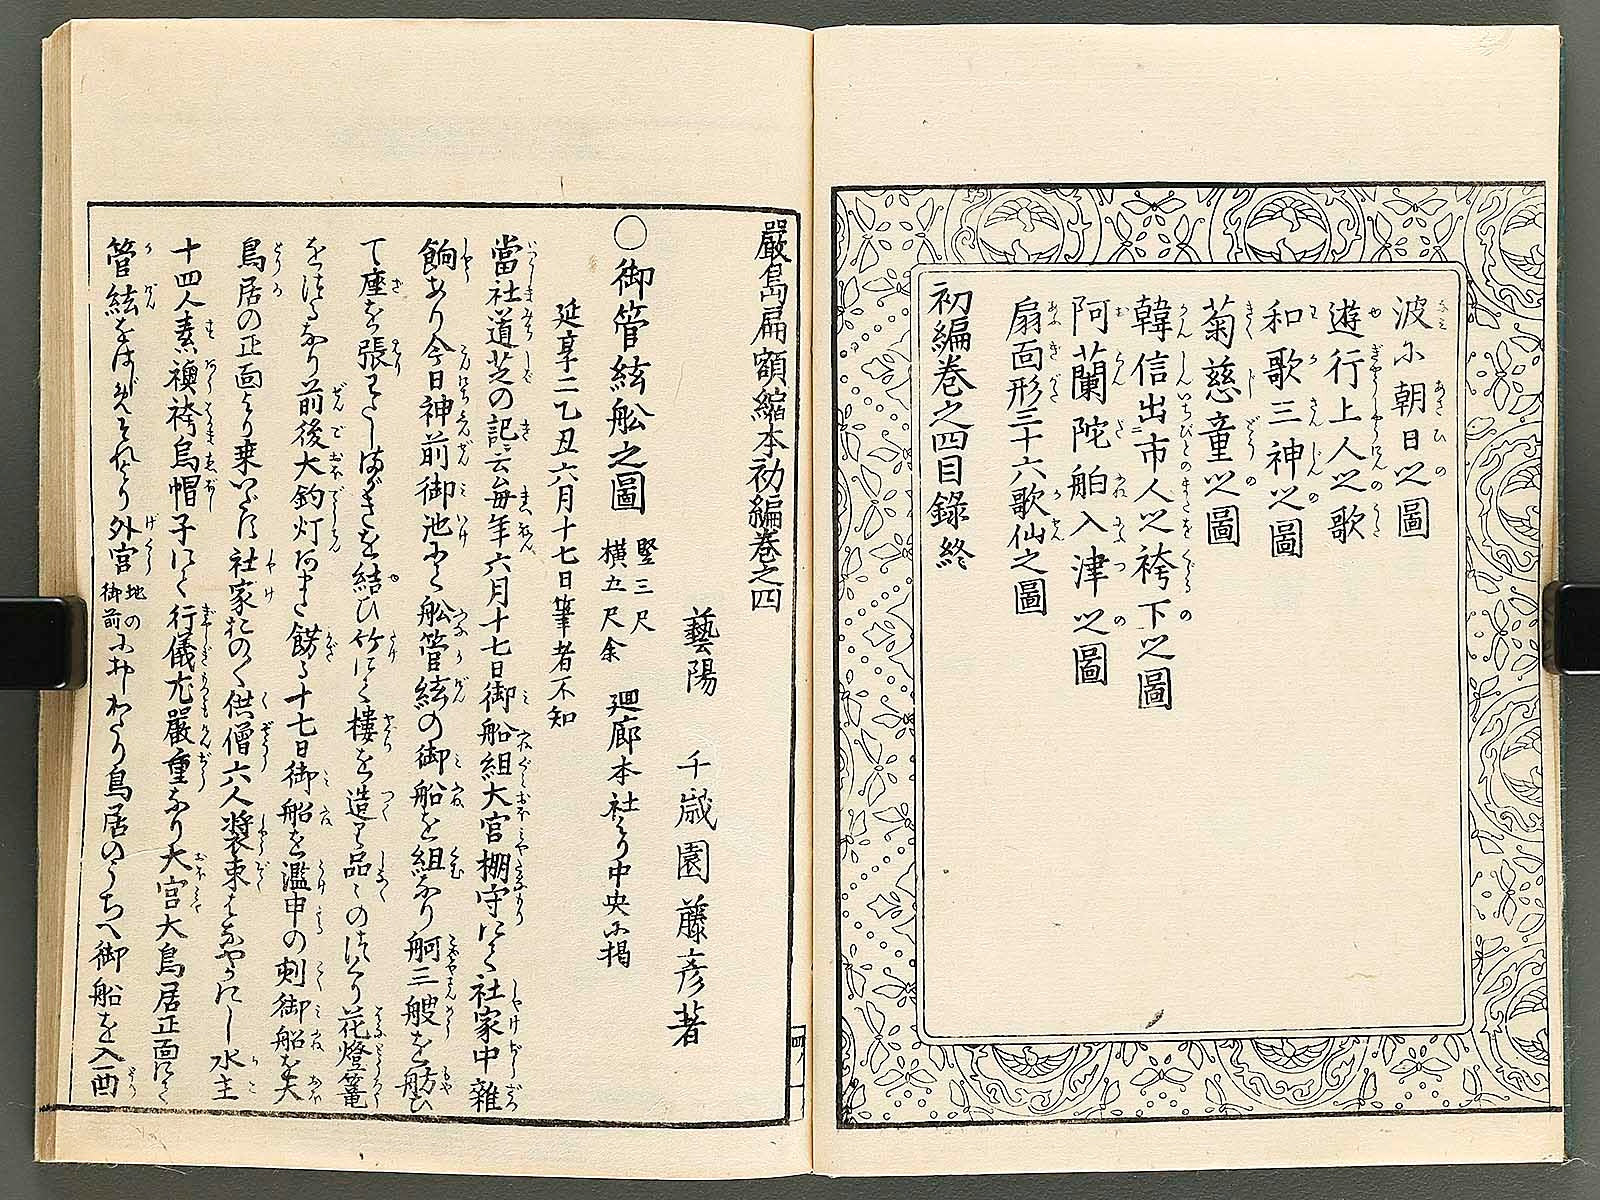 波に朝日之圖
遊行上人之歌
和歌三神之圖
菊慈童之圖
韓信出市人之袴下之圖
阿蘭陀舶入津之圖
扇面形三十六歌仙之圖
初編巻之四目錄終
嚴島扁額縮本初編巻之四
藝陽 千歳園藤彦著
○御管絃舩之圖 竪三尺 横五尺余 廻廊本社より中央に掲
延享二乙丑六月十七日筆者不知
當社道芝の記云毎年六月十七日御船組大宮棚守にて社家中雑
餉あり今日神前御池にて舩管絃の御船を組なり舸三艘を舫ひ
て座を張わたしまがきを結ひ竹にて樓を造り品々の花燈篭
をつるなり前後大釣灯あまた餝る十七日御船を濫申の刻御船を大
鳥居の正面より乗いだす社家おの〱供僧六人装束はなやかにし水主
十四人素襖袴烏帽子にて行儀尤嚴重なり大宮大鳥居正面にて
管絃をはじめそれより外宮 地の御前 におしわたり鳥居のうちへ御船を入酉